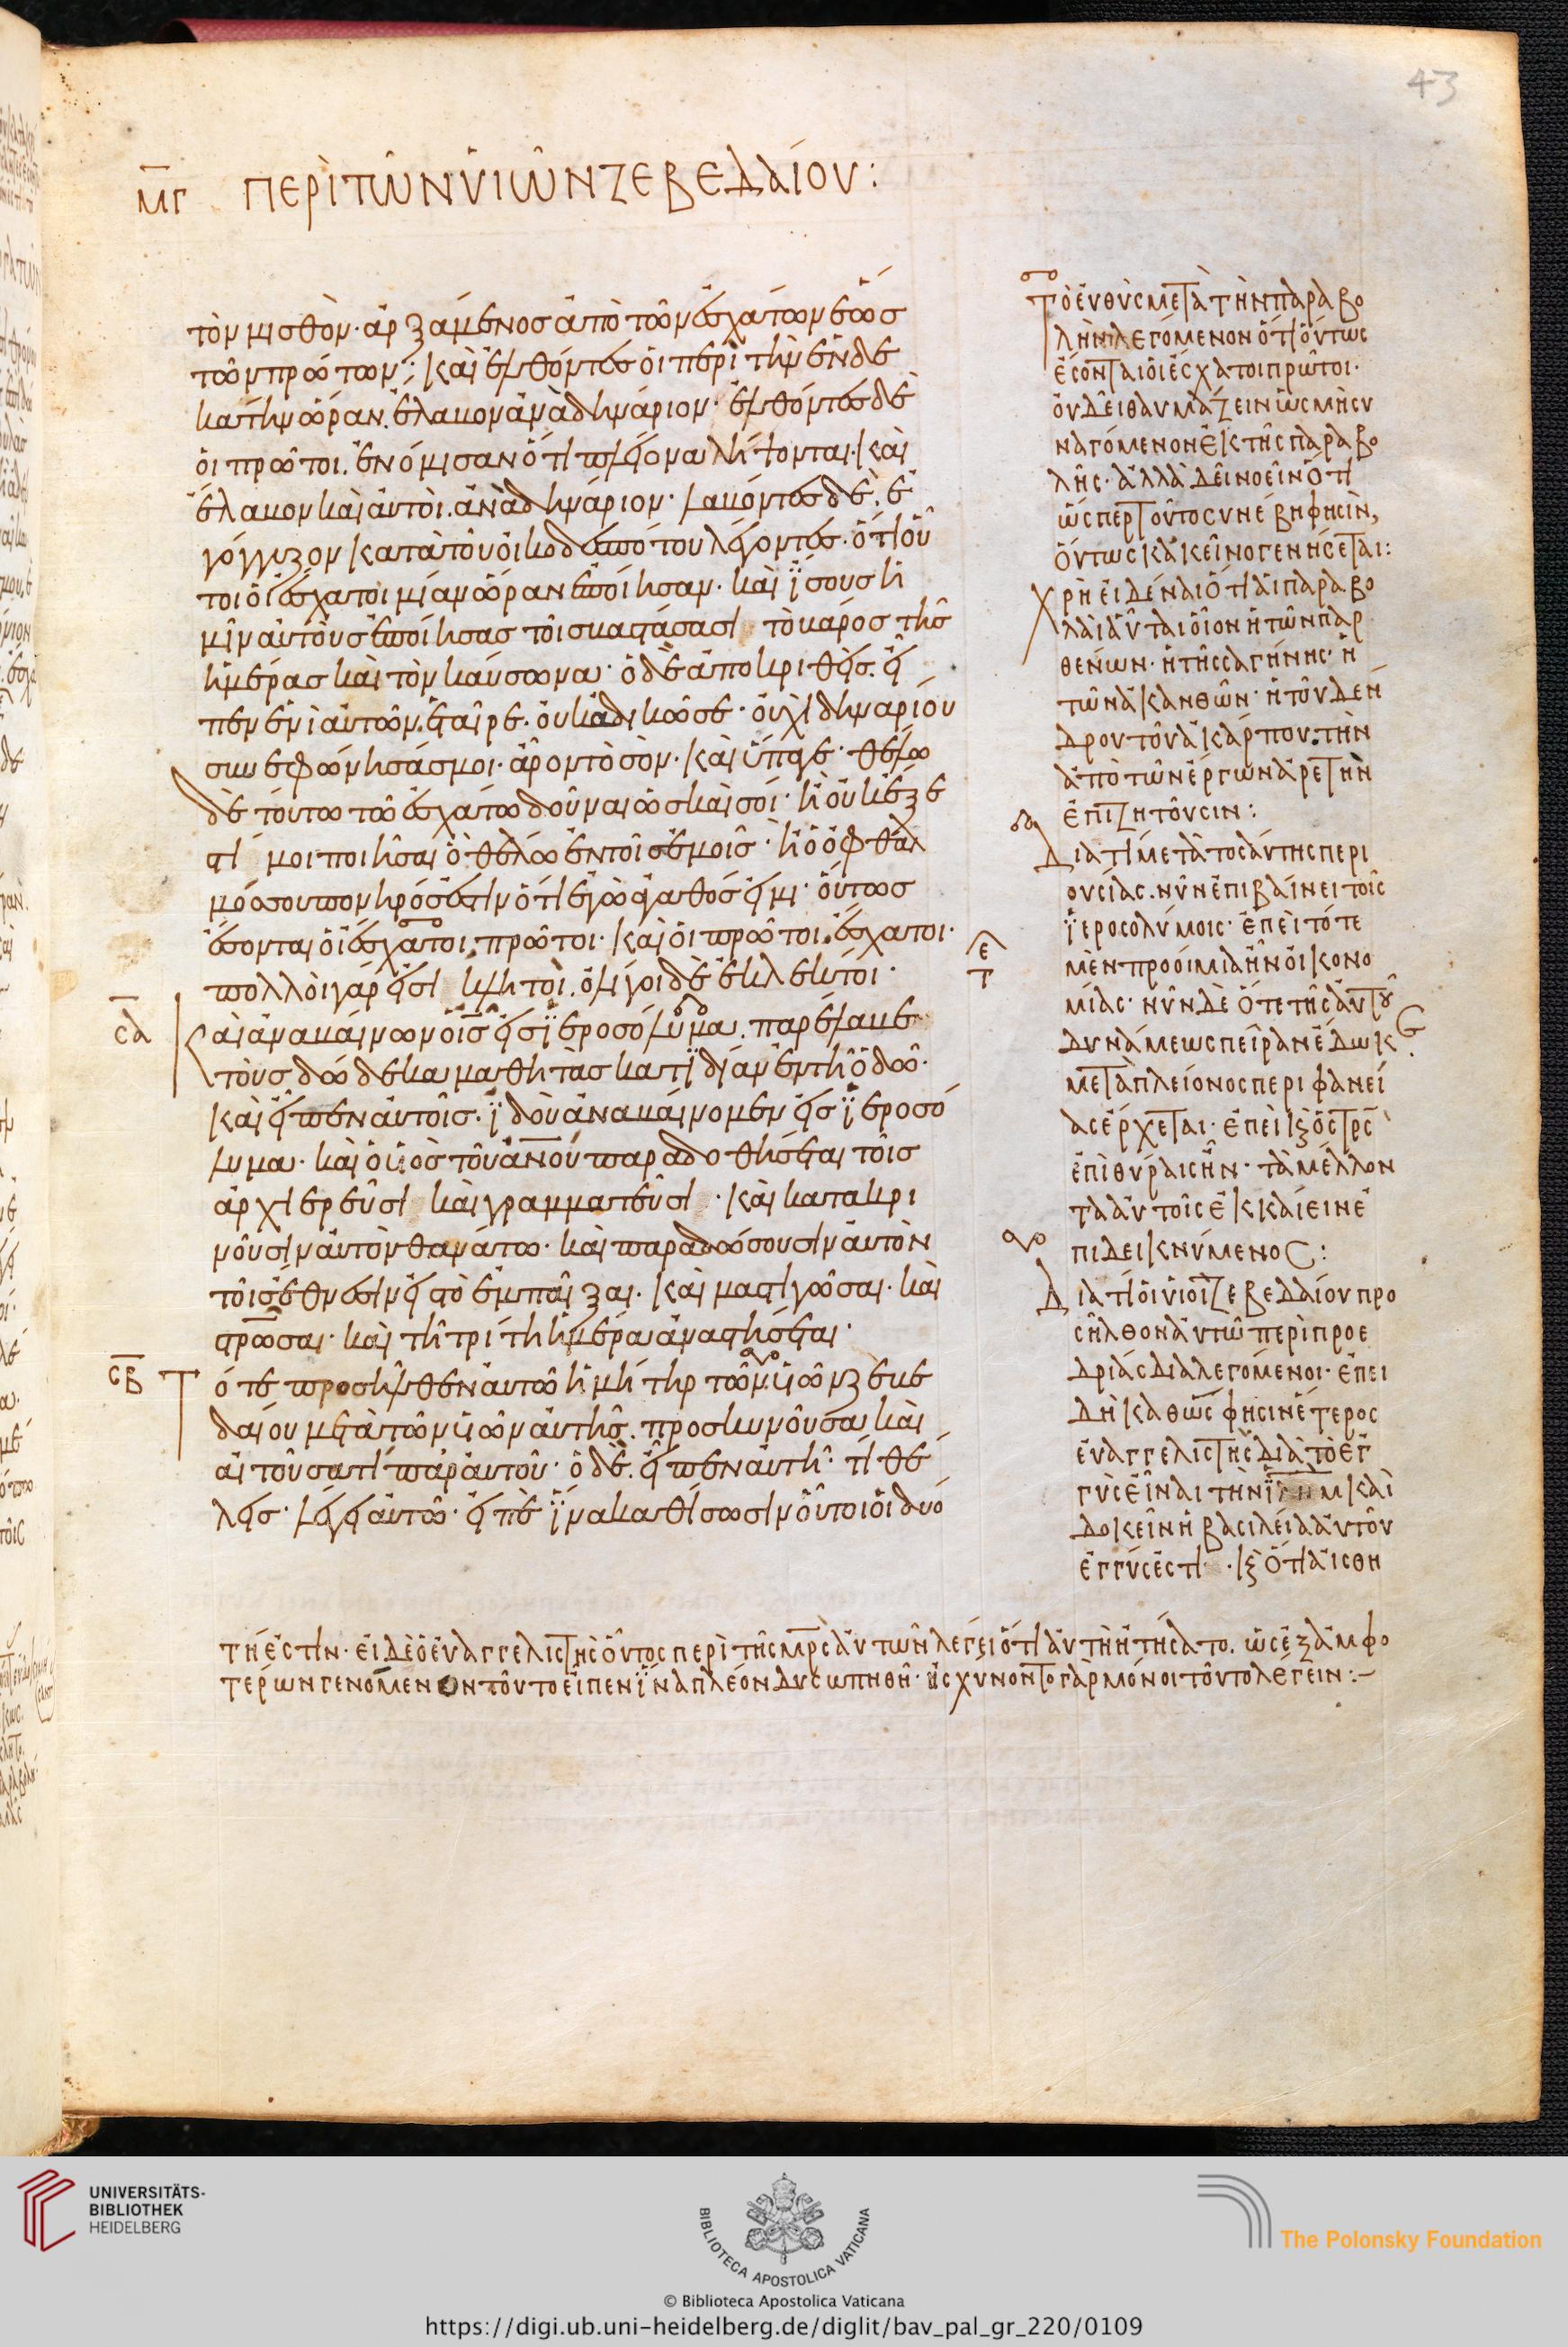 43
μγ περὶ τῶν υἱῶν ζεβεδαίου:
τὸν μισθὸν· ἀρξάμενοσ ἀπὸ τῶν ἐσχάτων ἕωσ
τῶν πρώτων; καὶ ἐλθόντεσ ὁι περὶ τὴν ἑνδε
κάτην ὥραν. ἔλαβον ἀνὰ δηνάριον· ἐλθόντεσ δὲ
ὁι πρῶτοι. ἐνόμισαν ὅτι πλέονα λήψονται· καὶ
ἔλαβον καὶ ἀυτὸι. ἀνὰ δηνάριον· λαβόντεσ δὲ. ἐ
γόγγυζον κατὰ τοῦ ὀικοδεσπότου λέγοντεσ· ὅτι οὗ
τοι ὁι ἔσχατοι μίαν ὥραν ἐποίησαν· καὶ ἴσουσ ἡ
μῖν ἀυτὸυσ ἐποίησασ τοῖσ βαστάσασι τὸ βάροσ τῆσ
ἡμέρασ καὶ τὸν καύσωνα· ὁ δὲ ἀποκριθεὶσ. εἶ
πεν ἑνὶ ἀυτῶν. ἑταῖρε. ὀυκ ἀδικῶ σε· ὀυχὶ δηναρίου
συνεφώνησάσ μοι· ἆρον τὸ σὸν· καὶ ὕπαγε· θέλω
δὲ τούτω τῶ ἐσχάτω δοῦναι ὡσ καὶ σοί· ἢ ὀυκ ἔξε
στί μοι ποιῆσαι ὃ θέλω ἐν τοῖσ ἐμοῖσ· ἢ ὁ ὀφθαλ
μόσ σου πονηρόσ ἐστιν ὅτι ἐγὼ ἀγαθόσ ἐιμι· ὅυτωσ
ἔσονται ὁι ἔσχατοι. πρῶτοι· καὶ ὁι πρῶτοι. ἔσχατοι·
πολλὸι γάρ ἐισι κλητοὶ. ὀλίγοι δὲ ἐκλεκτόι·
σα καὶ ἀναβαίνων ὁ ισ ἐισ ϊεροσόλυμα. παρέλαβε
τὸυσ δώδεκα μαθητὰσ κατϊδίαν ἐν τῆ ὁδῶ·
καὶ εἶπεν ἀυτοῖσ· ϊδὸυ ἀναβαίνομεν ἐισ ϊεροσό
λυμα· καὶ ὁ υἱὸσ τοῦ ανου παραδοθήσεται τοῖσ
ἀρχιερεῦσι καὶ γραμματεῦσι· καὶ κατακρι
νοῦσιν ἀυτὸν θανάτω· καὶ παραδώσουσιν ἀυτὸν
τοῖσ ἔθνεσιν ἐισ τὸ ἐμπαῖξαι· καὶ μαστιγῶσαι· καὶ
στρωσαι· καὶ τῆ τρίτη ἡμέρα ἀναστήσεται·
σβ τότε προσῆλθεν ἀυτῶ ἡ μήτηρ τῶν υἱῶν ζεβε
δαίου μετὰ τῶν υἱῶν ἀυτῆσ. προσκυνοῦσα καὶ
ἀιτοῦσα τὶ παρ' ἀυτοῦ· ὁ δὲ. εἶπεν ἀυτῆ· τί θέ
λεισ· λέγει ἀυτῶ· ἐιπὲ ϊνα καθίσωσιν οὗτοι ὁι δυό
ε
τ
Τὸ ἐυθὺς μετὰ τὴν παραβο
λὴν λεγόμενον ὅτι ὅυτως
ἔσονται ὁι ἔσχατοι πρῶτοι·
ὀυ δεῖ θαυμάζειν ὡς μὴ συ
ναγόμενον ἐκ τῆς παραβο
λῆς· ἀλλὰ δεῖ νοεῖν ὅτι
ὥσπερ τοῦτο συνέβη φησὶν,
ὅυτως κἀκεῖνο γενήσεται:
Χρὴ ἐιδέναι ὅτι ἁι παραβο
λαὶ αὗται ὁῖον ἡ τῶν παρ
θένων· ἡ τῆς σαγήνης· ἡ
τῶν ἀκανθῶν· ἡ τοῦ δέν
δρου τοῦ ἀκάρπου. τὴν
ἀπὸ τῶν ἔργων ἀρετὴν
ἐπιζητοῦσιν:
Διατί μετὰ τοσαύτης περι
ουσίας. νῦν ἐπιβαίνει τοῖς
ϊεροσολύμοις· ἐπεὶ τότε
μὲν προόιμια ἦν ὀικονο
μίας· νῦν δὲ ὅτε τῆς ἀυτοῦ
δυνάμεως πεῖραν ἔδωκε.
μετὰ πλείονος περιφανεί
ας ἔρχεται· ἐπεὶ κ ὁ στρς
ἐπὶ θύραις ἦν· τὰ μέλλον
τα ἀυτοῖς ἐκκαίειν ἐ
πιδεικνύμενος:
Διατί ὁι υἱοὶ ζεβεδαίου προ
σῆλθον ἀυτῶ περὶ προε
δρίας διαλεγόμενοι· ἐπει
δὴ καθώς φησιν ἕτερος
ἐυαγγελιστὴς διὰ τὸ ἐγ
γὺς εἶναι τὴν ϊλημ καὶ
δοκεῖν ἡ βασιλεία ἀυτοῦ
ἐγγύς ἐστι· κ ὅτι ἀισθη
τή ἐστιν· ἐι δὲ ὁ ἐυαγγελιστὴς ὅυτος περὶ τῆς μρς ἀυτῶν λέγει ὅτι ἀυτὴ ἠτήσατο. ὡς ἐξ ἀμφο
τέρων γενόμενον τοῦτο εἶπεν ϊνα πλέον δυσωπηθῆ· ἠσχύνοντο γὰρ μόνοι τοῦτο λέγειν:–
UNIVERSITÄTS-
BIBLIOTHEK
HEIDELBERG
BIBLIOTECA APOSTOLICA VATICANA
The Polonsky Foundation
© Biblioteca Apostolica Vaticana
https://digi.ub.uni-heidelberg.de/diglit/bav_pal_gr_220/0109